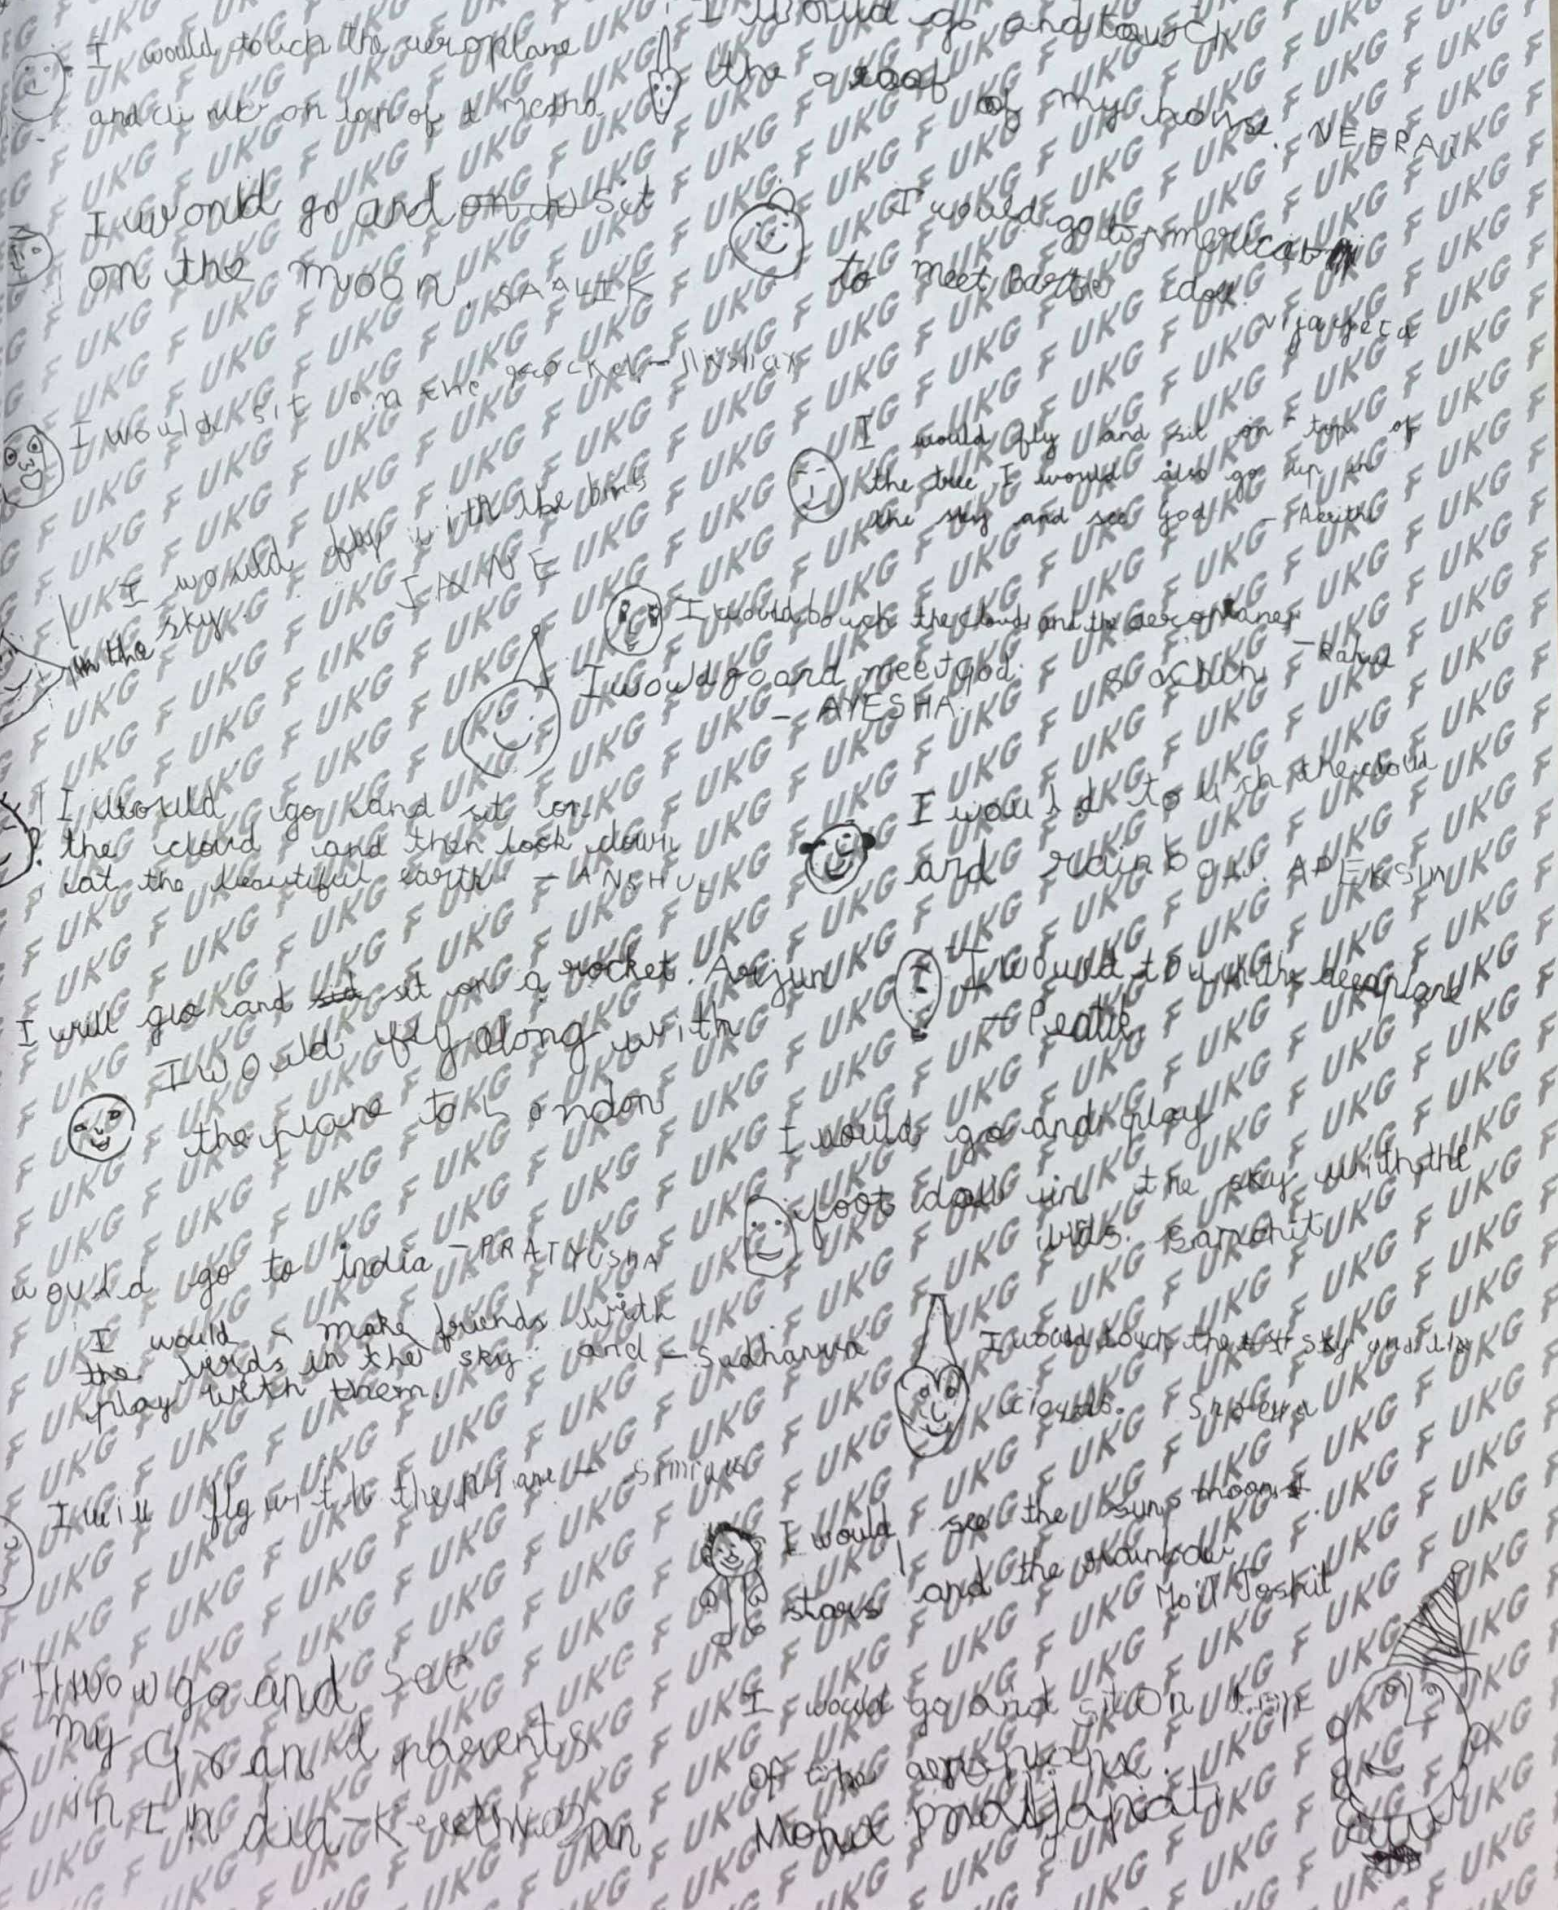 I would touch the aeroplane
and climb on top of it
I would go and touch
the roof
of my house. NEERAJ
I would go and sit
on the moon. SAALIK
I would go to America
to meet Barbie doll
vijayeta
I would sit on the rocket -
I would fly and sit on top of
the tree I would also go up in
the sky and see god
I would fly with the birds
in the sky.
JANE
I would touch the clouds and the aeroplanes
- Rahul
I would go and meet god.
- AYESHA
Sachin
I would go and sit on
the cloud and then look down
at the beautiful earth - ANSHUL
I would touch the cloud
and rainbow.
I will go and sid sit on a rocket. Arjun
I would touch the
I would fly along with
the plane to London
I would go and play
foot ball in the sky with the
birds.
would go to india - PRATYUSHA
I would make friends with
the birds in the sky and - Sudhanva
play with them.
I would touch the sky and
clouds. Shreya
I will fly with the plane - Simran
I would see the sun, moon
stars and the rainbow
go and see
my Grand parents
in India -
I would go and sit on top
of the aeroplane.
Prajapati
UKG F UKG F UKG F